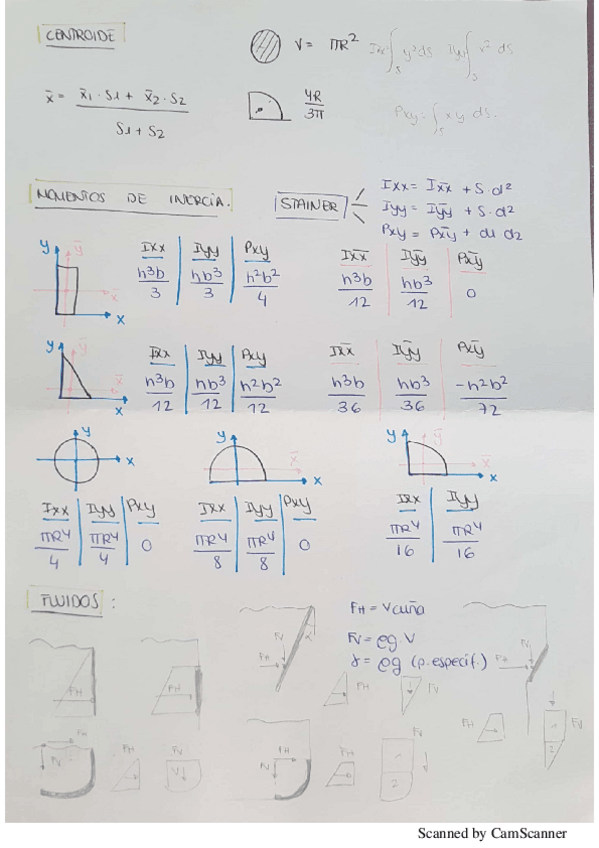 CENTROIDE
V = πR²
Ixx = ∫s y² ds Iyy ∫s x² ds
x̄ = x̄1 · S1 + x̄2 · S2 / S1 + S2
4R / 3π
Pxy = ∫s xy ds.
MOMENTOS DE INERCIA.
STAINER
Ixx = Ix̄x̄ + S·d²
Iyy = Iȳȳ + S·d²
Pxy = Px̄ȳ + d1 d2
y ȳ x̄ x
Ixx Iyy Pxy Ix̄x̄ Iȳȳ Px̄ȳ
h³b/3 hb³/3 h²b²/4 h³b/12 hb³/12 0
y ȳ x̄ x
Ixx Iyy Pxy Ix̄x̄ Iȳȳ Px̄ȳ
h³b/12 hb³/12 h²b²/12 h³b/36 hb³/36 -h²b²/72
y x
y x̄ x
y ȳ x̄ x
Ixx Iyy Pxy
πR⁴/4 πR⁴/4 0
Ixx Iyy Pxy
πR⁴/8 πR⁴/8 0
Ixx Iyy
πR⁴/16 πR⁴/16
FLUIDOS :
FH = Vcuña
FV = ρg V
γ = ρg (p. específ.)
FH
FH
FV
FH
FH
FV
FV
FH
FH
FV
1
2
FH
FV
FH
FV
V
FH
FV
FH
1
2
Scanned by CamScanner